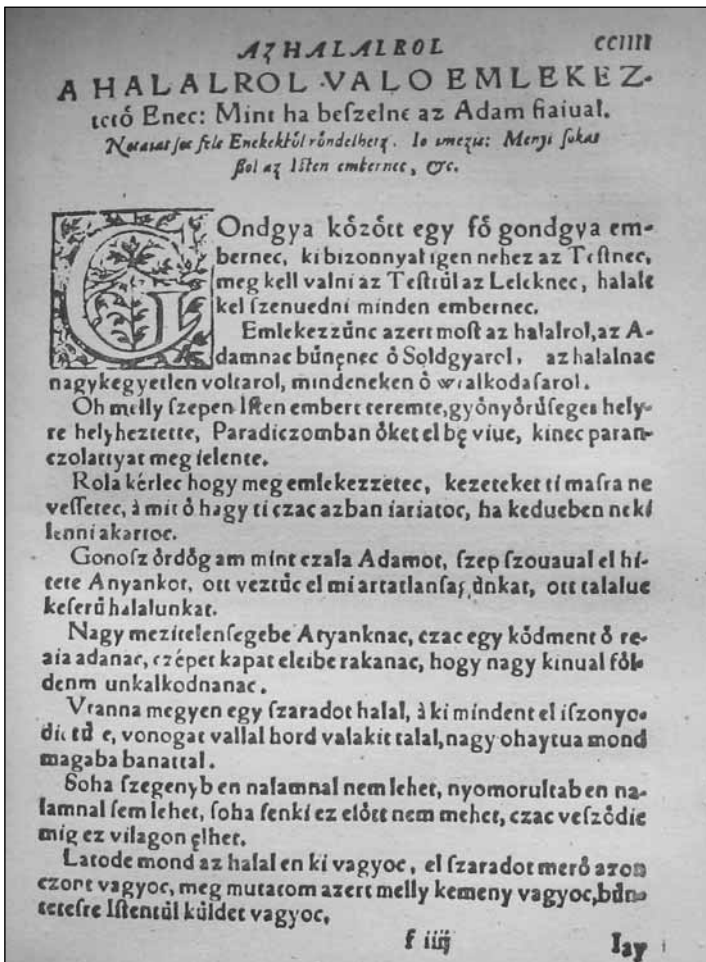 AZ HALALROL CCIIII
A HALALROL VALO EMLEKEZ-
tető Enec: Mint ha beſzelne az Adam fiaiual.
ſoc fele Enekektűl : Menyi ſokas
az Iſten embernec, &c.
GOndgya kőzőtt egy fő gondgya em-
bernec, ki bizonnyat igen nehez az Teſtnec,
meg kell valni az Teſttűl az Leleknec, halalt
kel ſzenuedni minden embernec.
Emlekezzűnc azert moſt az halalrol, az A-
damnac bűnęnec ő Soldgyarol, az halalnac
nagy kegyetlen voltarol, mindeneken ő vialkodaſarol.
Oh melly ſzepen Iſten embert teremte, győnyőrűſeges hely-
re helyheztette, Paradiczomban őket el bę viue, kinec paran-
czolattyat meg ielente.
Rola kérlec hogy meg emlekezzetec, kezeteket ti maſra ne
veſſetec, à mit ő hagy ti czac azban iariatoc, ha kedueben neki
lenni akartoc.
Gonoſz őrdőg am mint czala Adamot, ſzep ſzouaual el hi-
tete Anyankot, ott veztűc el mi artatlanſagűnkat, ott talaluc
keſerű halalunkat.
Nagy mezitelenſegebe Atyanknac, czac egy kődment ő re-
aia adanac, czépet kapat eleibe rakanac, hogy nagy kinual fől-
denm unkalkodnanac.
Vtanna megyen egy ſzaradot halal, à ki mindent el iſzonyo-
vonogat vallal hord valakit talal, nagy ohaytua mond
magaba banattal.
Soha ſzegenyb en nalamnal nem lehet, nyomorultab en na-
lamnal ſem lehet, ſoha ſenki ez előtt nem mehet, czac veſződic
mig ez vilagon ęlhet.
Latode mond az halal en ki vagyoc, el ſzaradot merő azon
czont vagyoc, meg mutatom azert melly kemeny vagyoc, bűn-
teteſre Iſtentűl kűldet vagyoc.
f iiij Iay